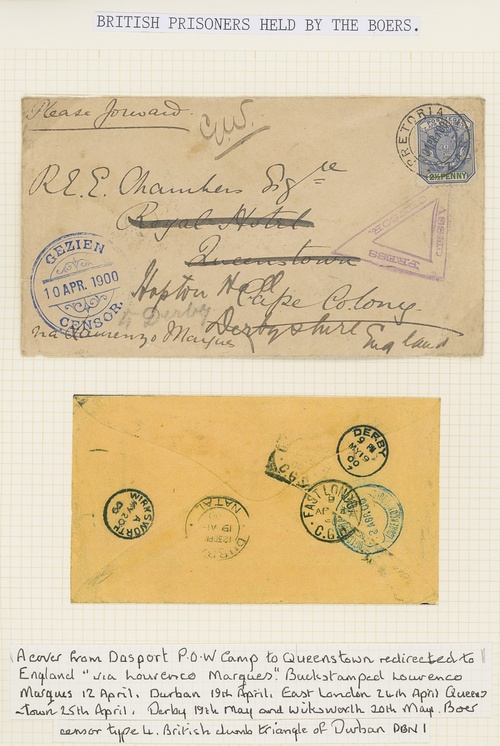 BRITISH PRISONERS HELD BY THE BOERS.
Please forward.
PRETORIA
2½ PENNY
R.E.E. Chambers Esqre
Royal Hotel
Queenstown
GEZIEN
10 APR. 1900
CENSOR.
PRESS
Hopton Hall
Cape Colony
Derby
Derbyshire
England
via Lourenzo Marques
DERBY
9 PM
MY 19
00
WIRKSWORTH
A
MY 20
00
DURBAN
NATAL
EAST LONDON
C.G.H
A cover from Dasport P.O.W Camp to Queenstown redirected to
England "via Lourenco Marques". Backstamped Lourenco
Marques 12 April. Durban 19th April. East London 24th April Queens
-town 25th April. Derby 19th May and Wiksworth 20th May. Boer
censor type 4. British dumb triangle of Durban DBN 1